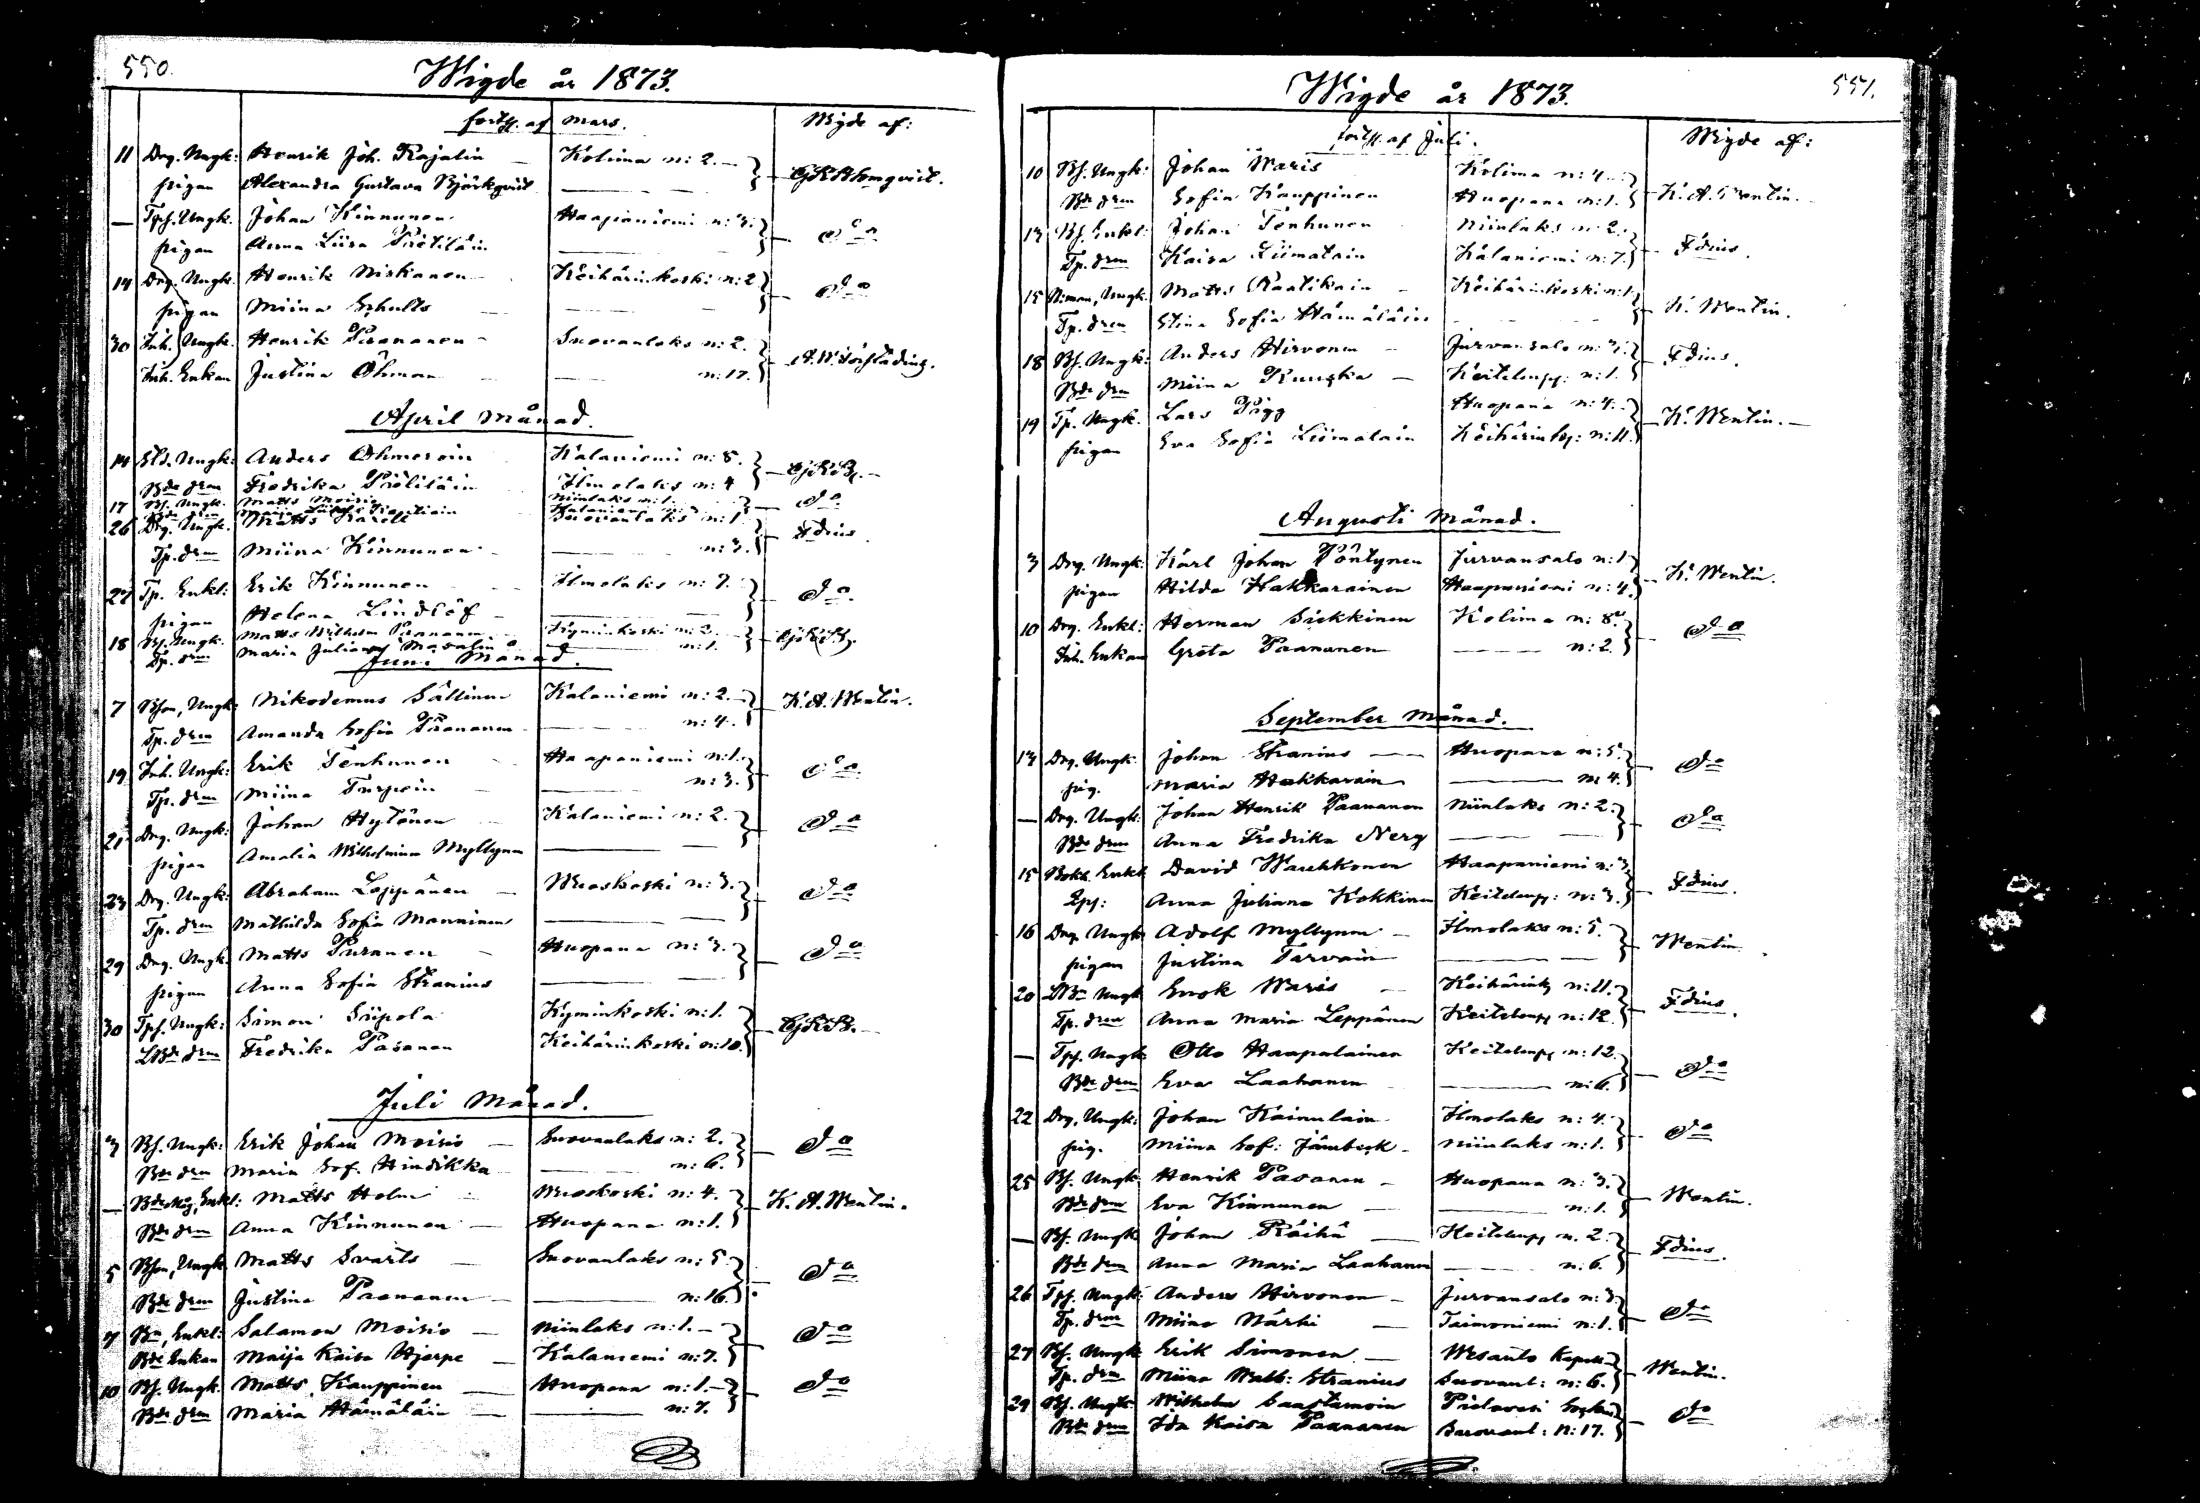 550.
Wigde år 1873.
forts. af Mars. Wigde af:
11 Drg. Ungk: Henrik Joh. Rajalin Kolima n: 2.
pigan Alexandra Gustava Björkqvist
— Tpf. Ungk. Johan Kinnunen Haapaniemi n: 3. do
pigan Anna Liisa Pötiläin
14 Drg. Ungk. Henrik Niskanen Keihärinkoski n: 2 do
pigan Miina Schults
30 Inh. Ungk. Henrik Paananen Suovanlaks n: 2.
Inh. Enkan Justina Öhman n: 17.
April Månad.
14 Ungk: Anders Öhmoroin Kalaniemi n: 8.
Bde drn Fredrika Pötiläin Ilmolaks n: 4
17 Bf. Ungk. Matts Moisio Niinlaks n: 1. do
Bde drn
26 Drg. Ungk. Matts Suovanlaks n: 1 Fdius
Tp. drn Miina Kinnunen n: 3.
27 Tp. Enkl: Erik Kinnunen Ilmolaks n: 7. do
pigan Helena Lindlöf
18 Bf. Ungk. Matts Wilhelm Paananen Kyminkoski n: 2.
Tp. drn Maria Juliana Masalin n: 1.
Juni Månad.
7 Bson, Ungk: Nikodemus Sällinen Kalaniemi n: 2. K. A. Wentin.
Tp. drn Amanda Sofia Paananen n: 4.
19 Inh. Ungk: Erik Tenhunen Haapaniemi n: 1. do
Tp. drn Miina Turpein n: 3.
21 Drg. Ungk: Johan Hytönen Kalaniemi n: 2. do
pigan Amalia Wilhelmina Myllynen
23 Drg. Ungk: Abraham Leppänen Wuoskoski n: 3. do
Tp. drn Mathilda Sofia Manninen
29 Drg. Ungk. Matts Puranen Huopana n: 3. do
pigan Anna Sofia Stranius
30 Tpf. Ungk: Simon Siipola Kyminkoski n: 1.
drn Fredrika Pasanen Keihärinkoski n: 10.
Juli Månad.
3 Bf. Ungk: Erik Johan Moisio Suovanlaks n: 2. do
Bde drn Maria Sof. Hindikka n: 6.
— Bde Måg, Enkl: Matts Holm Wuoskoski n: 4. K. A. Wentin.
Bde drn Anna Kinnunen Huopana n: 1.
5 Bson, Ungk Matts Svarts Suovanlaks n: 5 do
Bde drn Justina Paananen n: 16.
7 Bn, Enkl: Salamon Moisio Niinlaks n: 1. do
Bde Enkan Maija Kaisa Hjerpe Kalaniemi n: 7.
10 Bf. Ungk. Matts Kauppinen Huopana n: 1. do
Bde drn Maria Hämäläin n: 7.
551.
Wigde år 1873.
forts. af Juli. Wigde af:
10 Bf. Ungk: Johan Waris Kolima n: 4. K. A. Wentin.
Bde drn Sofia Kauppinen Huopana n: 1.
13 Bf. Enkl: Johan Tenhunen Niinlaks n: 2. Fdius.
Tp. drn Kaisa Liimatain Kalaniemi n: 7.
15 Ungk. Matts Raatikain Keihärinkoski n: 1. K. Wentin.
Tp. drn Stina Sofia Hämäläin
18 Bf. Ungk: Anders Hirvonen Jurvansalo n: 3. Fdius.
Bde drn Miina Ruuska Keitelenp: n: 1.
19 Tp. Ungk. Lars Pigg Huopana n: 4. K. Wentin.
pigan Eva Sofia Liimatain n: 11.
Augusti Månad.
3 Drg. Ungk: Karl Johan Pöntynen Jurvansalo n: 1 K. Wentin.
pigan Hilda Hakkarainen Haapaniemi n: 4.
10 Drg. Enkl: Herman Siekkinen Kolima n: 8. do
Inh. Enkan Greta Paananen n: 2.
September Månad.
14 Drg. Ungk. Johan Stranius Huopana n: 5. do
pig. Maria Hakkarain n: 4.
— Drg. Ungk: Johan Henrik Paananen Niinlaks n: 2. do
Bde drn Anna Fredrika Nerg
15 Enkl David Wauhkonen Haapaniemi n: 3 Fdius.
Anna Juliana Kokkinen Keitelenp: n: 3.
16 Drg. Ungk Adolf Myllynen Ilmolaks n: 5. Wentin
pigan Justina Tarvain
20 Ungk Enok Waris n: 11. Fdius.
Tp. drn Anna Maria Leppänen Keitelenp n: 12.
— Tpf. Ungk Otto Haapalainen Keitelenp n: 12. do
Bde drn Eva Laahanen n: 6.
22 Drg. Ungk: Johan Kainulain Ilmolaks n: 4. do
pig. Miina Sof: Järnbeck Niinlaks n: 1.
25 Bf. Ungk Henrik Pasanen Huopana n: 3. Wentin.
Bde drn Eva Kinnunen n: 1.
— Bf. Ungk Johan Räihä Keitelenp n. 2. Fdius.
Bde drn Anna Maria Laahanen n: 6.
26 Tpf. Ungk: Anders Hirvonen Jurvansalo n: 3. do
Tp. drn Miina Närhi Taimoniemi n: 1.
27 Bf. Ungk Erik Simonen Wesanto Kapell Wentin.
Tp. drn Miina Stranius Suovanl: n: 6.
29 Bf. Ungk. Wilhelm Saastamoin Pielavesi Socken do
Bde drn Ida Kaisa Paananen Suovanl: n: 17.